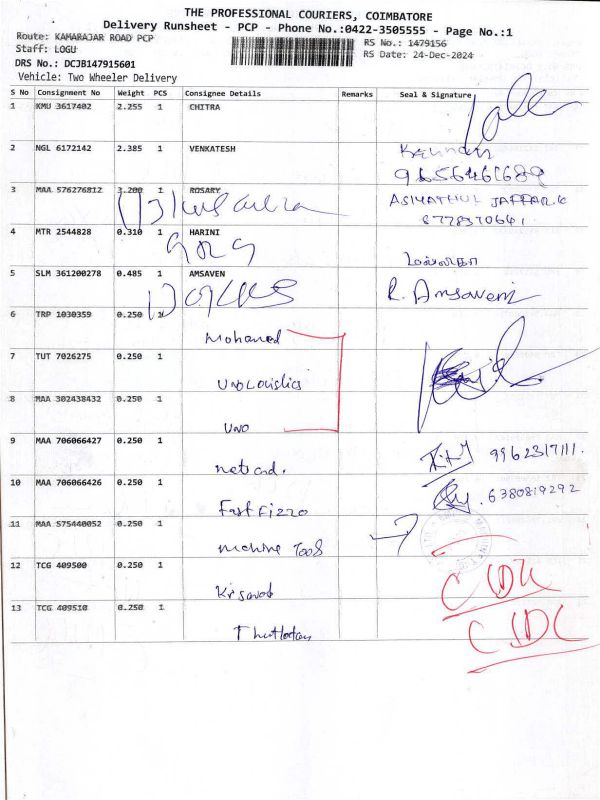 THE PROFESSIONAL COURIERS, COIMBATORE
Delivery Runsheet - PCP - Phone No.:0422-3505555 - Page No.:1
Route: KAMARAJAR ROAD PCP
Staff: LOGU
RS No.: 1479156
RS Date: 24-Dec-2024
DRS No.: DCJB147915601
Vehicle: Two Wheeler Delivery
S No Consignment No Weight PCS Consignee Details Remarks Seal & Signature
1 KMU 3617402 2.255 1 CHITRA
2 NGL 6172142 2.385 1 VENKATESH
9656461689
3 MAA 576276812 3.200 1 ROSARY
ASIYATHUL JAFFAR.K
8778370641
4 MTR 2544828 0.310 1 HARINI
5 SLM 361200278 0.485 1 AMSAVEN
R. Amsaveni
6 TRP 1030359 0.250 1
Mohamed
7 TUT 7026275 0.250 1
Uno Logistics
8 MAA 302438432 0.250 1
UNO
9 MAA 706066427 0.250 1
9962317111.
netcad.
10 MAA 706066426 0.250 1
6380819292
Fast Fizzo
11 MAA 575440052 0.250 1
machine Tools
12 TCG 409500 0.250 1
13 TCG 409510 0.250 1